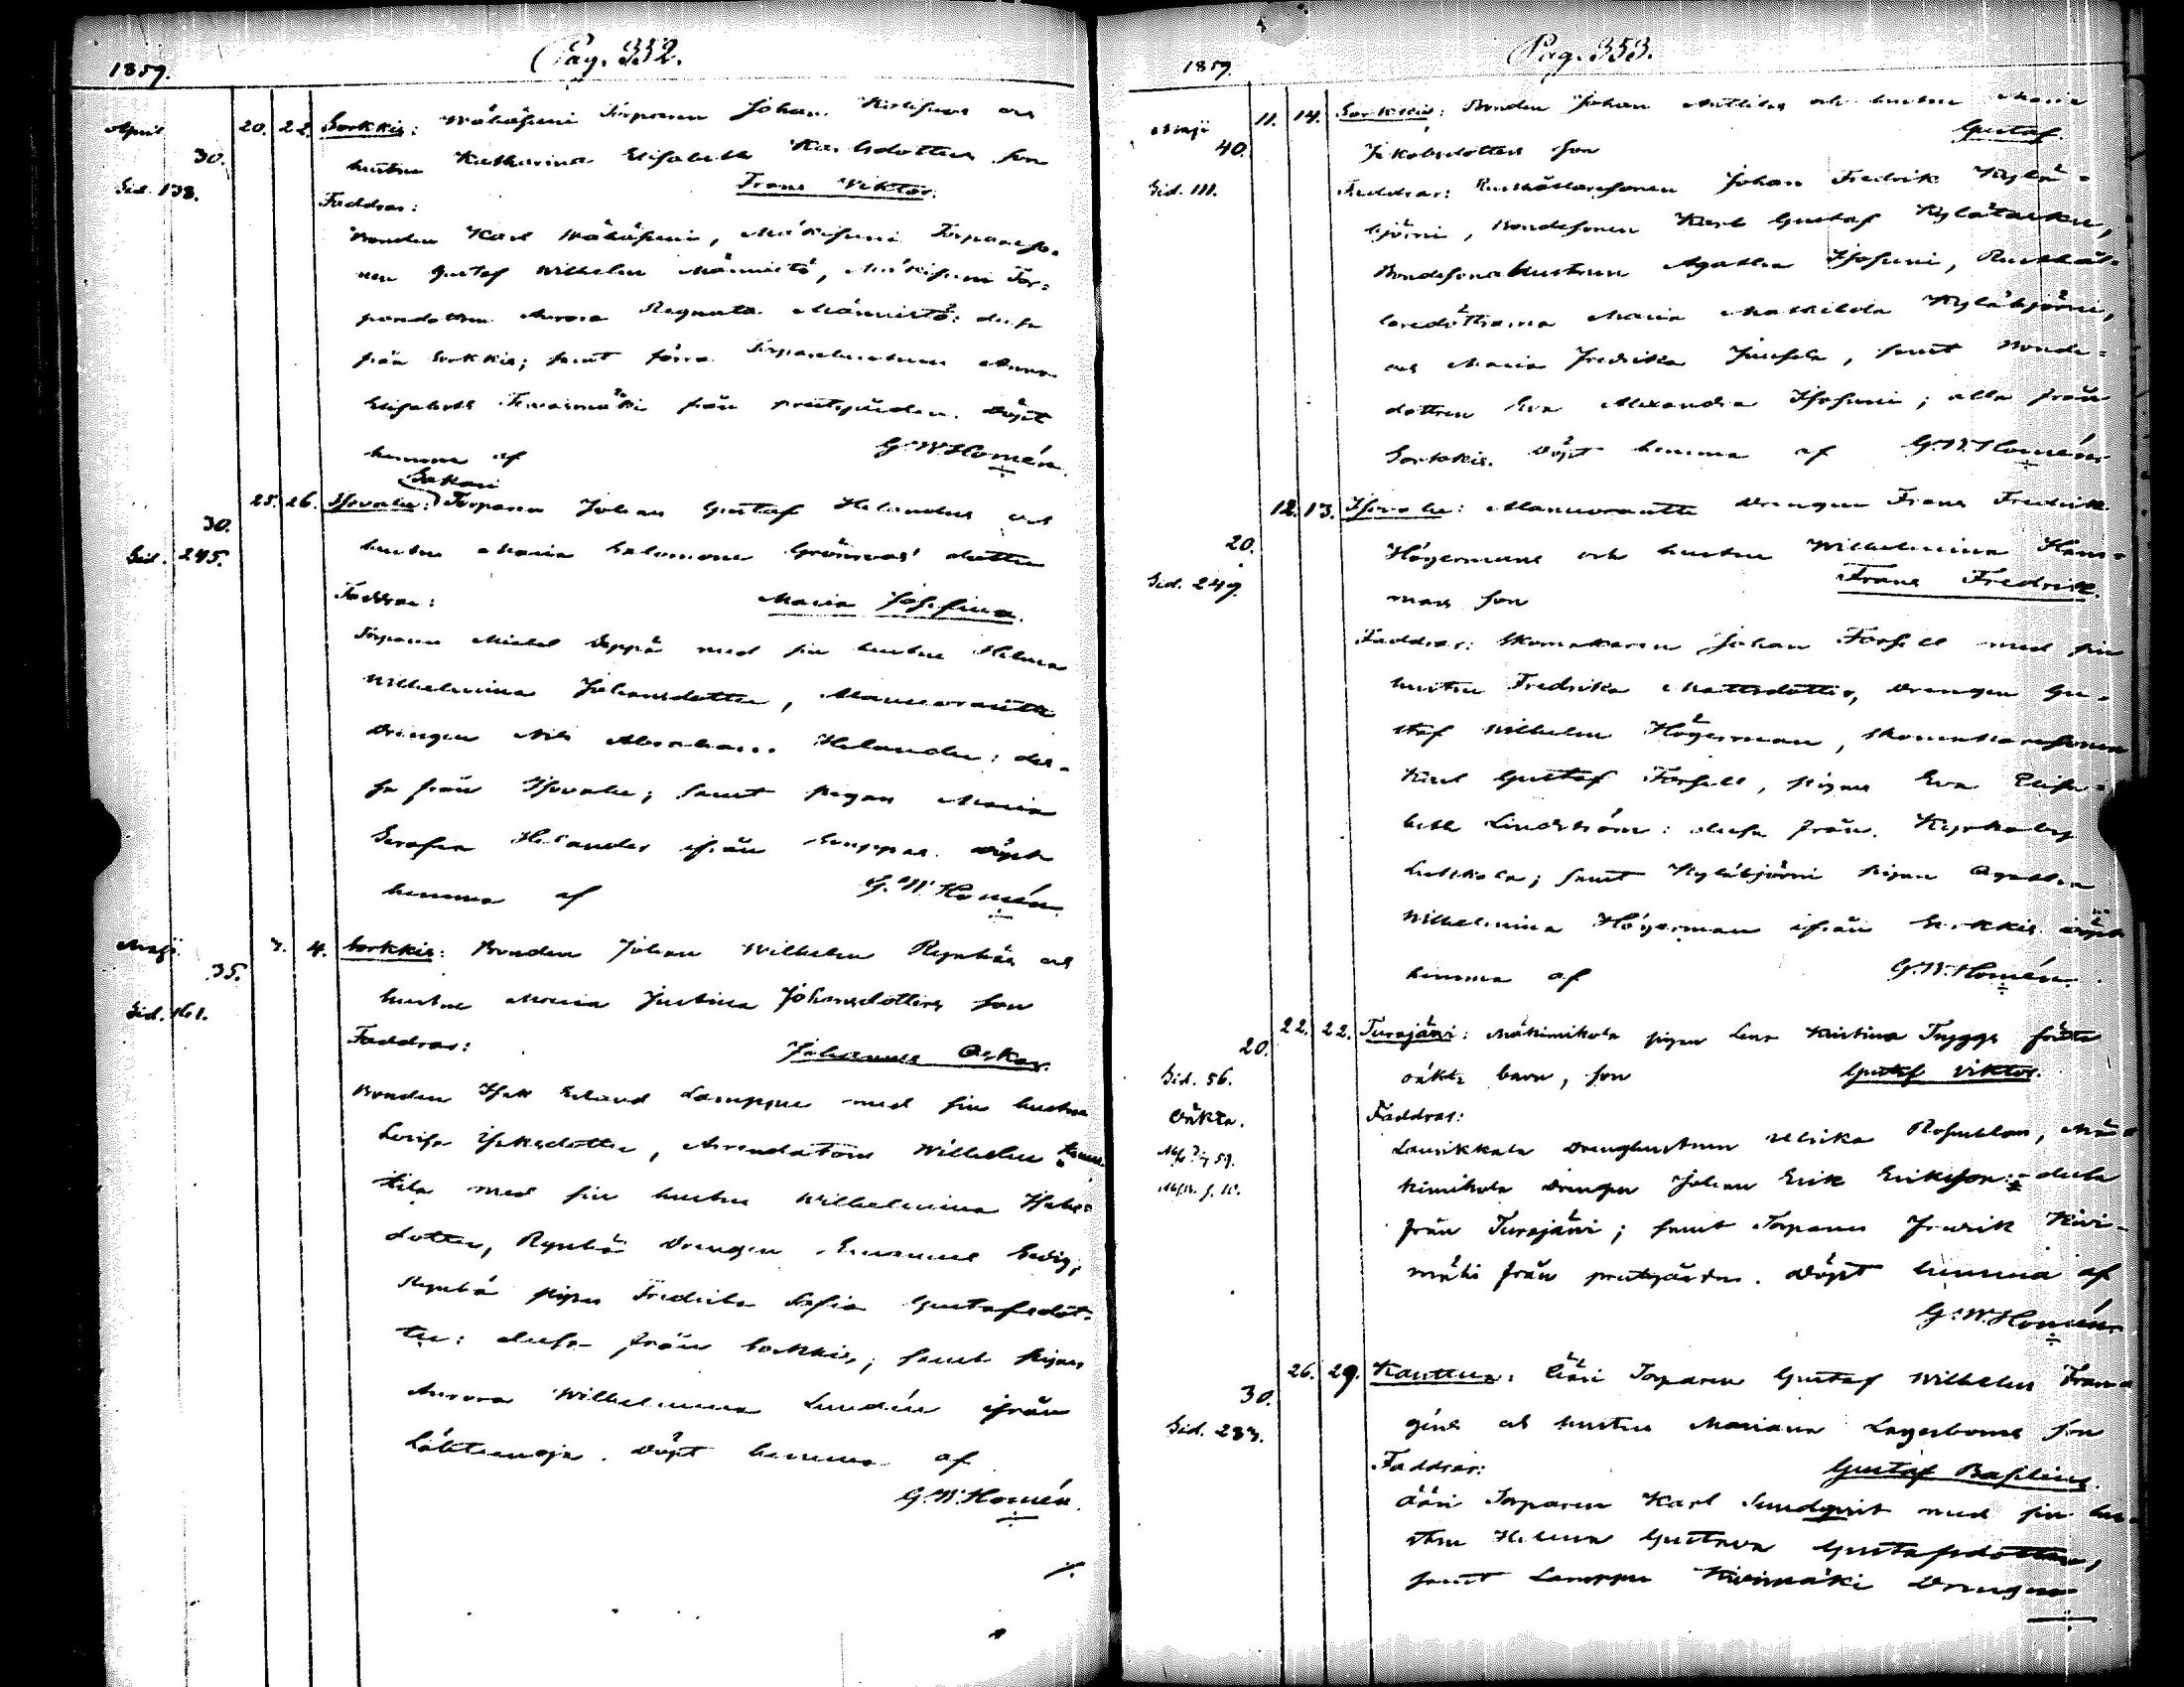 Pag. 352.
1859.
April 20. 22. Sorkkis: Wähäjuni Torparen Johan och
30. hustru Katharina Elisabeth Karlsdotters son
Sid. 138. Frans Viktor.
Faddrar:
Bonden Karl Wähäjuni, Mäkijuni Torpareso-
nen Gustaf Wilhelm Männistö, Mäkijuni Tor-
paredottren Aurora Regnata Männistö: dessa
från Sorkkis; samt förra Torparehustrun Anna
Elisabeth från prestgården. Döpt
hemma af G.W. Homén.
Sakari
25. 26. Isovahe: Torparen Johan Gustaf Helanders och
30. hustru Maria Salomone Grönroos' dotter
Sid. 245.
Faddrar: Maria Josefina.
Torparen Michel Seppä med sin hustru Helena
Wilhelmina Johansdotter, Mannerantti
Drengen Nils Abraham Helander: des-
sa från Isovahe; samt pigan Maria
Serafia Helander ifrån . Döpt
hemma af G.W. Homén.
Maji 3. 4. Sorkkis: Bonden Johan Wilhelm Ryskäs och
35. hustru Maria Justina Johansdotters son
Sid. 161.
Faddrar: Johannes Oskar.
Bonden Isak Erland Lamppu med sin hustru
Lovisa Isaksdotter, Arrendatorn Wilhelm
tila med sin hustru Wilhelmina Isaks-
dotter, Drengen Emanuel
pigan Fredrika Sofia Gustafsdot-
ter: dessa från Sorkkis; samt pigan
Aurora Wilhelmina Lundén ifrån
Lähteenoja. Döpt hemma af
G.W. Homén.
Pag. 353.
1859.
Maji 11. 14. Sorkkis: Bonden Johan Anttilas och hustru Maria
40. Jakobsdotters son Gustaf.
Sid. 111. Faddrar: Rusthållaresonen Johan Fredrik Kylä-
björni, Bondesonen Karl Gustaf Kylätasku,
Bondesonahustrun Agatha Isojuni, Rusthål-
laredöttrarna Maria Mathilda Kyläbjörni,
och Maria Fredrika Jussila, samt Bonde-
dottren Eva Alexandra Isojuni; alla från
Sorkkis. Döpt hemma af G.W. Homén
12. 13. Isovahe: Mannerantti Drengen Frans Fredrik
20. Högermans och hustru Wilhelmina Ham-
Sid. 249. mars son Frans Fredrik.
Faddrar: Skomakaren Johan Forsell med sin
hustru Fredrika Mattsdotter, Drengen Gu-
staf Wilhelm Högerman, Skomakaresonen
Karl Gustaf Forsell, pigan Eva Elisa-
beth Lindström: dessa från Kyrkoby
Luhtala; samt Kyläbjörni pigan Agatha
Wilhelmina Högerman ifrån Sorkkis. Döpt
hemma af G.W. Homén.
22. 22. Turajärvi: Mäkimikola pigan Lena Kristina Tryggs första
20. oäkta barn, son Gustaf Viktor.
Sid. 56.
Oäkta.
Faddrar:
Laurikkala Drenghustrun Ulrika Rosenblom, Mä-
kimikola Drengen Johan Erik Eriksson: dessa
från Turajärvi; samt Torparen Fredrik Kivi-
mäki från prestgården. Döpt hemma af
G.W. Homén
26. 29. Kauttua: Ääri Torparen Gustaf Wilhelm Fran-
30. géns och hustru Mariana Lagerboms son
Sid. 283.
Faddrar: Gustaf Basilius.
Ääri Torparen Karl Sundqvist med sin hu-
stru Helena Gustava Gustafsdotter,
samt Lamppu Kivimäki Drengen